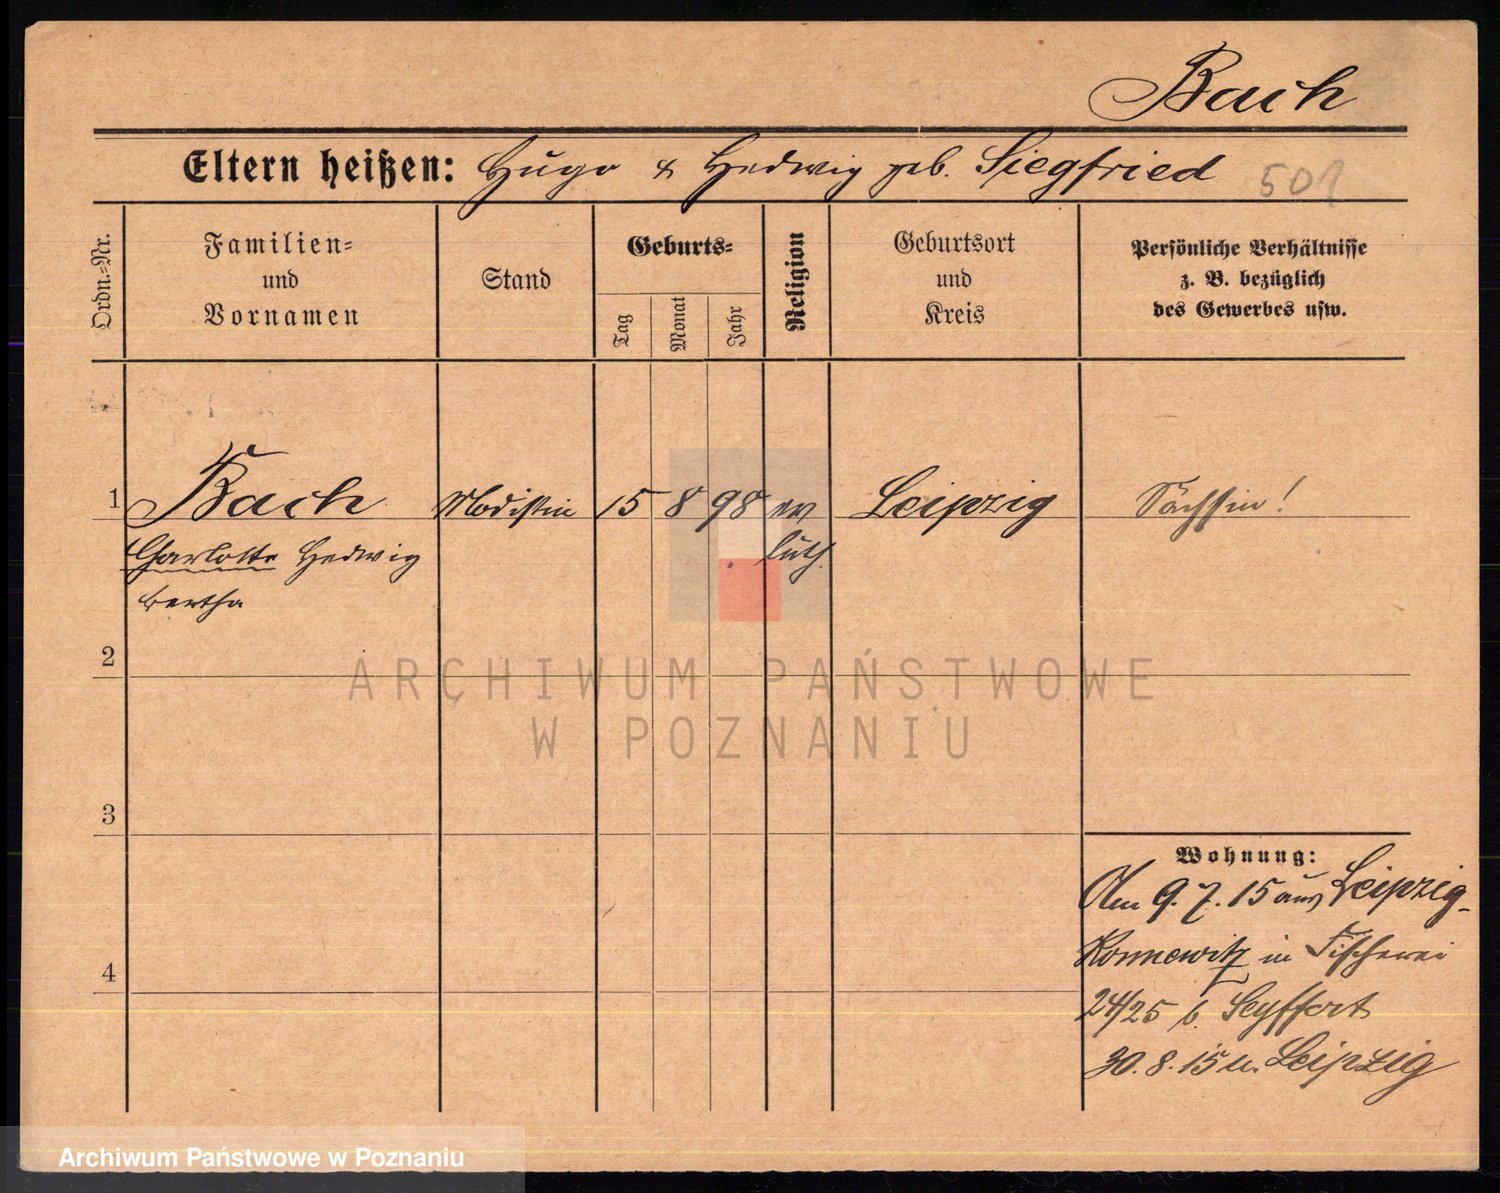 Bach
Eltern heißen: Hugo & Hedwig geb. Siegfried 501
Ordn.-Nr.
Familien-
und
Vornamen
Stand
Geburts-
Tag
Monat
Jahr
Religion
Geburtsort
und
Kreis
Persönliche Verhältnisse
z. B. bezüglich
des Gewerbes usw.
1 Bach Modistin 15 8 98 ev Leipzig Sächsin!
luth.
Charlotte Hedwig
Bertha
2
ARCHIWUM PAŃSTWOWE
W POZNANIU
3
Wohnung:
Am 9.7.15 aus Leipzig-
Konnewitz in Fischerei
4
24/25 b. Seyffert
30.8.15 n. Leipzig
Archiwum Państwowe w Poznaniu